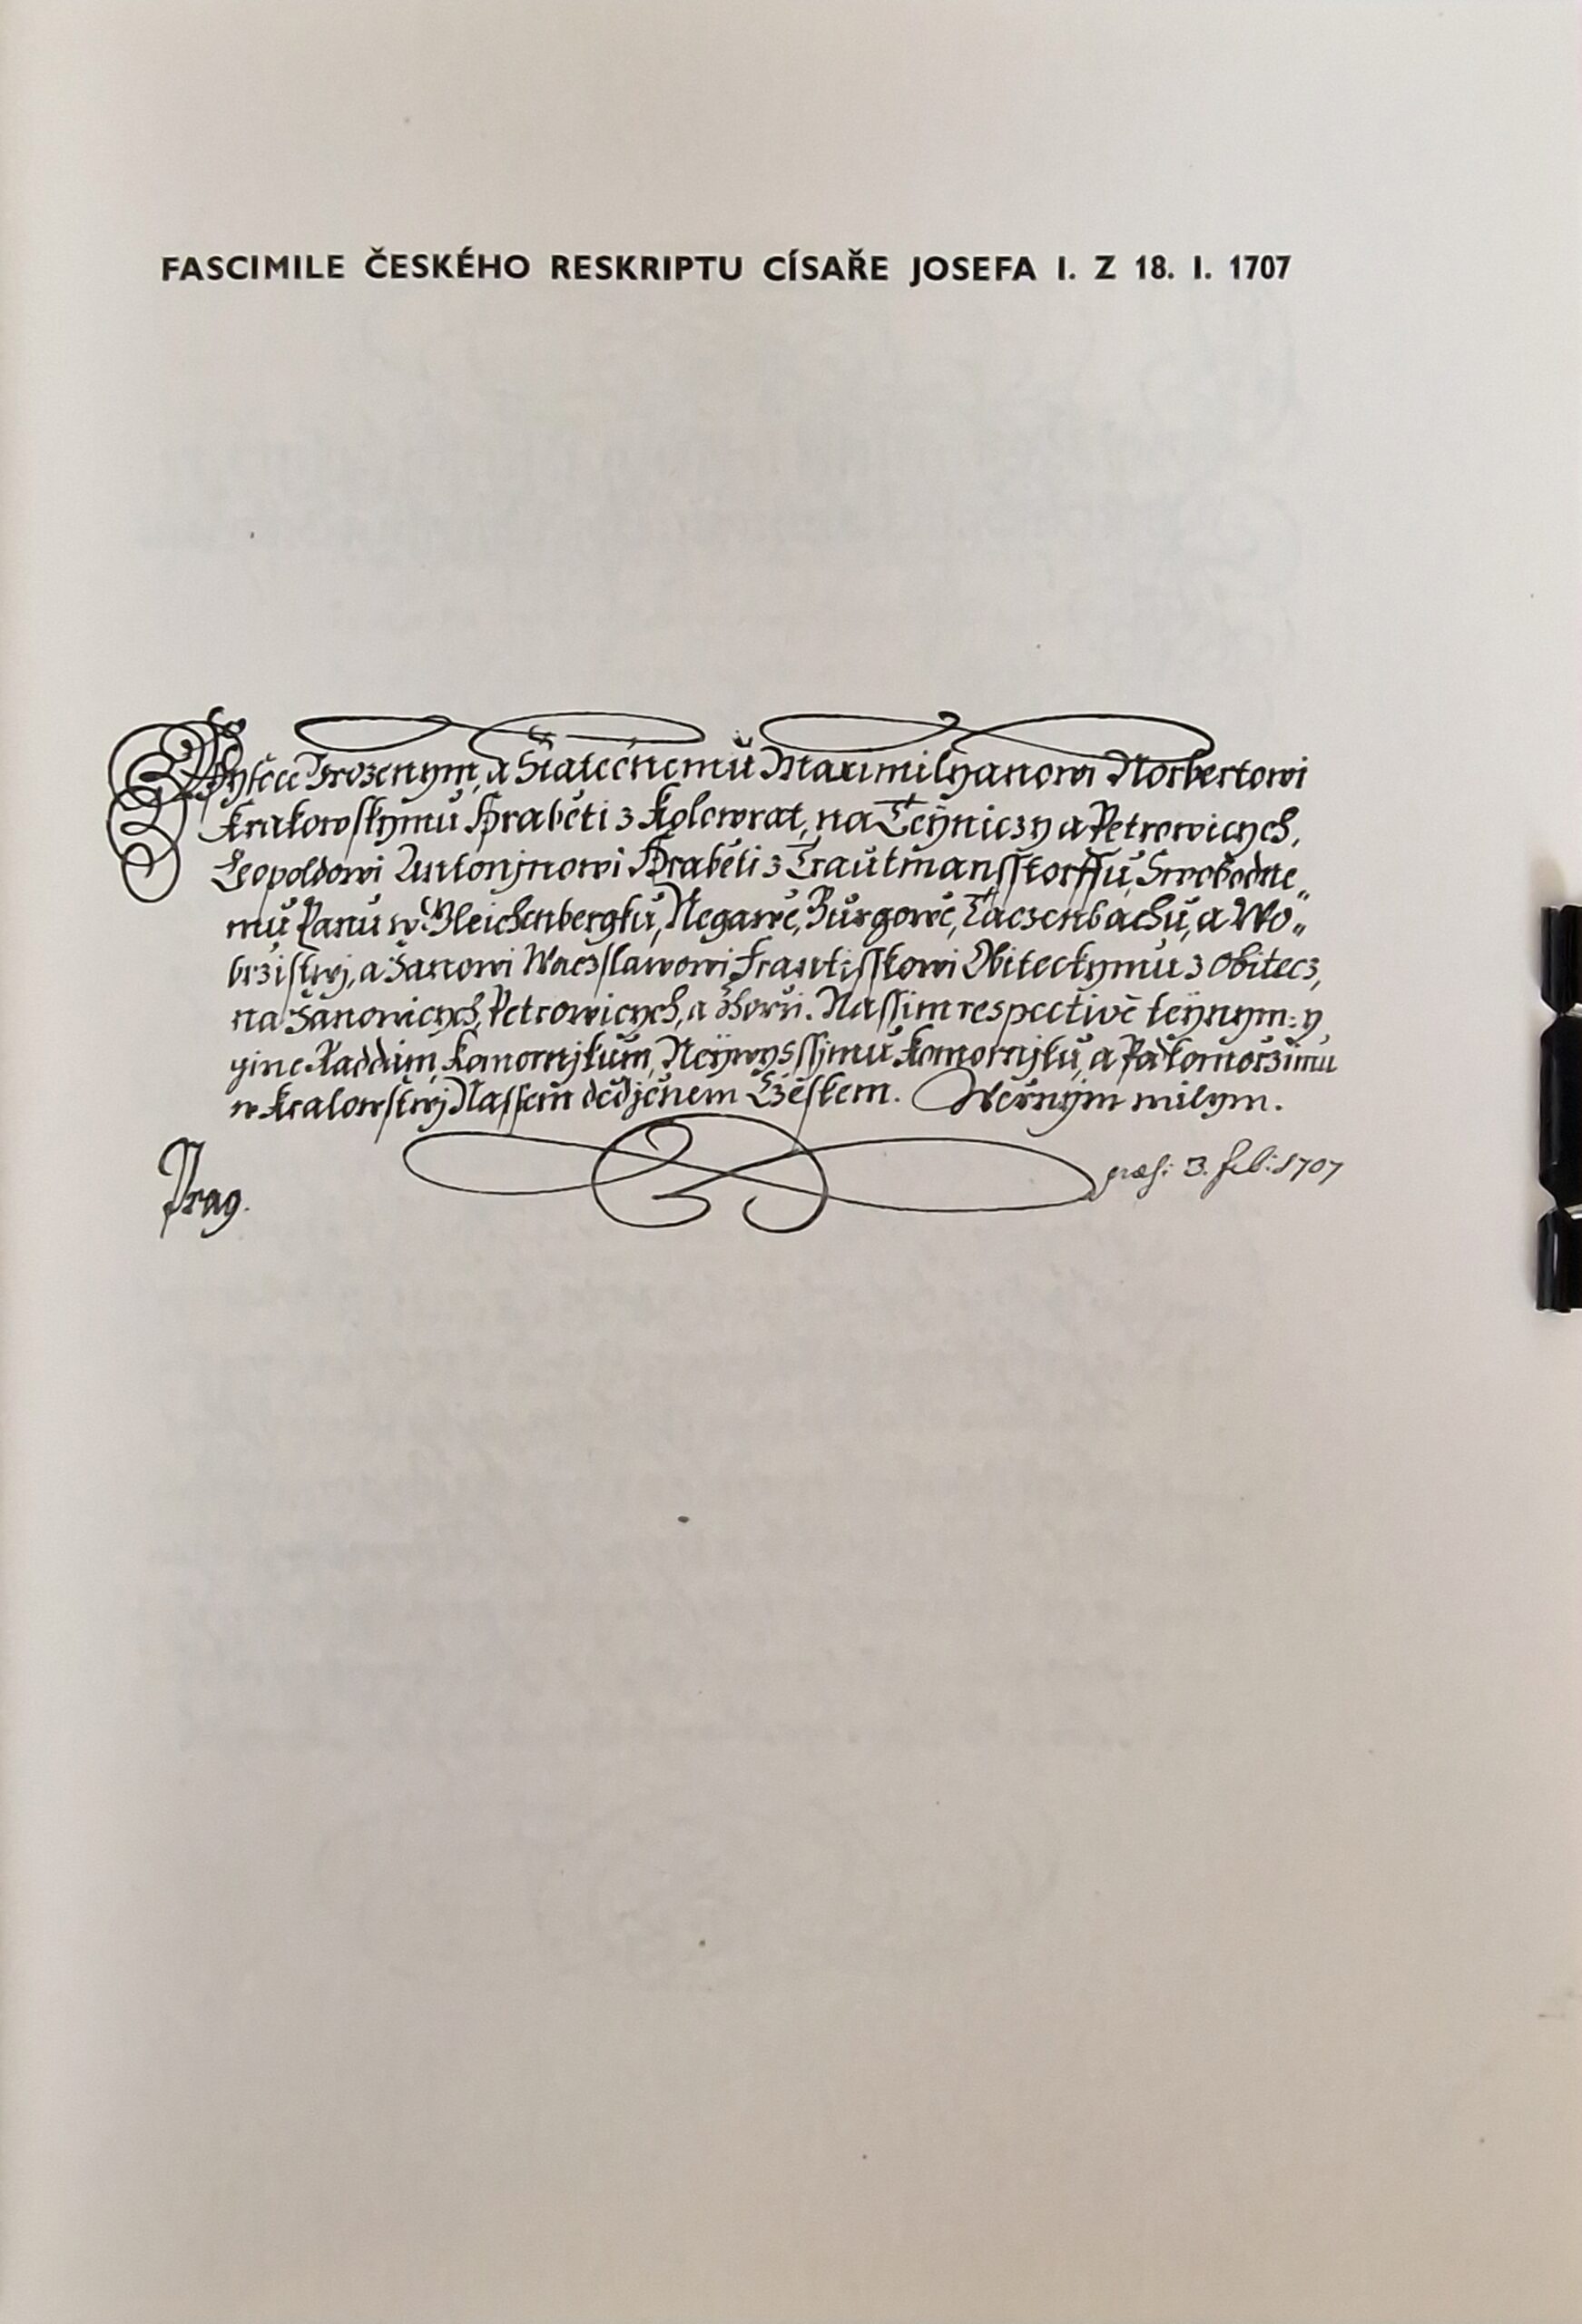 FASCIMILE ČESKÉHO RESKRIPTU CÍSAŘE JOSEFA I. Z 18. I. 1707
Wyſoce Urozenym, a Statečnemů Maximilyanowi Norbertowi
Krakowſkymů Hraběti z Kolowrat, na Teyniczy a Petrowicych,
Leopoldowi Antonjnowi Hraběti z Trautmanſſtorffů, Swobodne„
mů Panů w Gleichenbergků, Negawě, Burgowě, Taczenbachů, a Wo„
brziſtwj, a Janowi Waczſlawowi Frantiſſkowi Obiteckymů z Obitecz,
na Janowicych, Petrowicych, a Zhorži. Naſſim respectivè teynym: y
gine Raddům, Komornjkům, Neywysſſjmů Komornjků, a Podkomoržimů
w Kralowſtwj Naſſem dědjčnem Czeſkem. Wěrnym milym.
præſ: 3. feb: 1707
Prag.